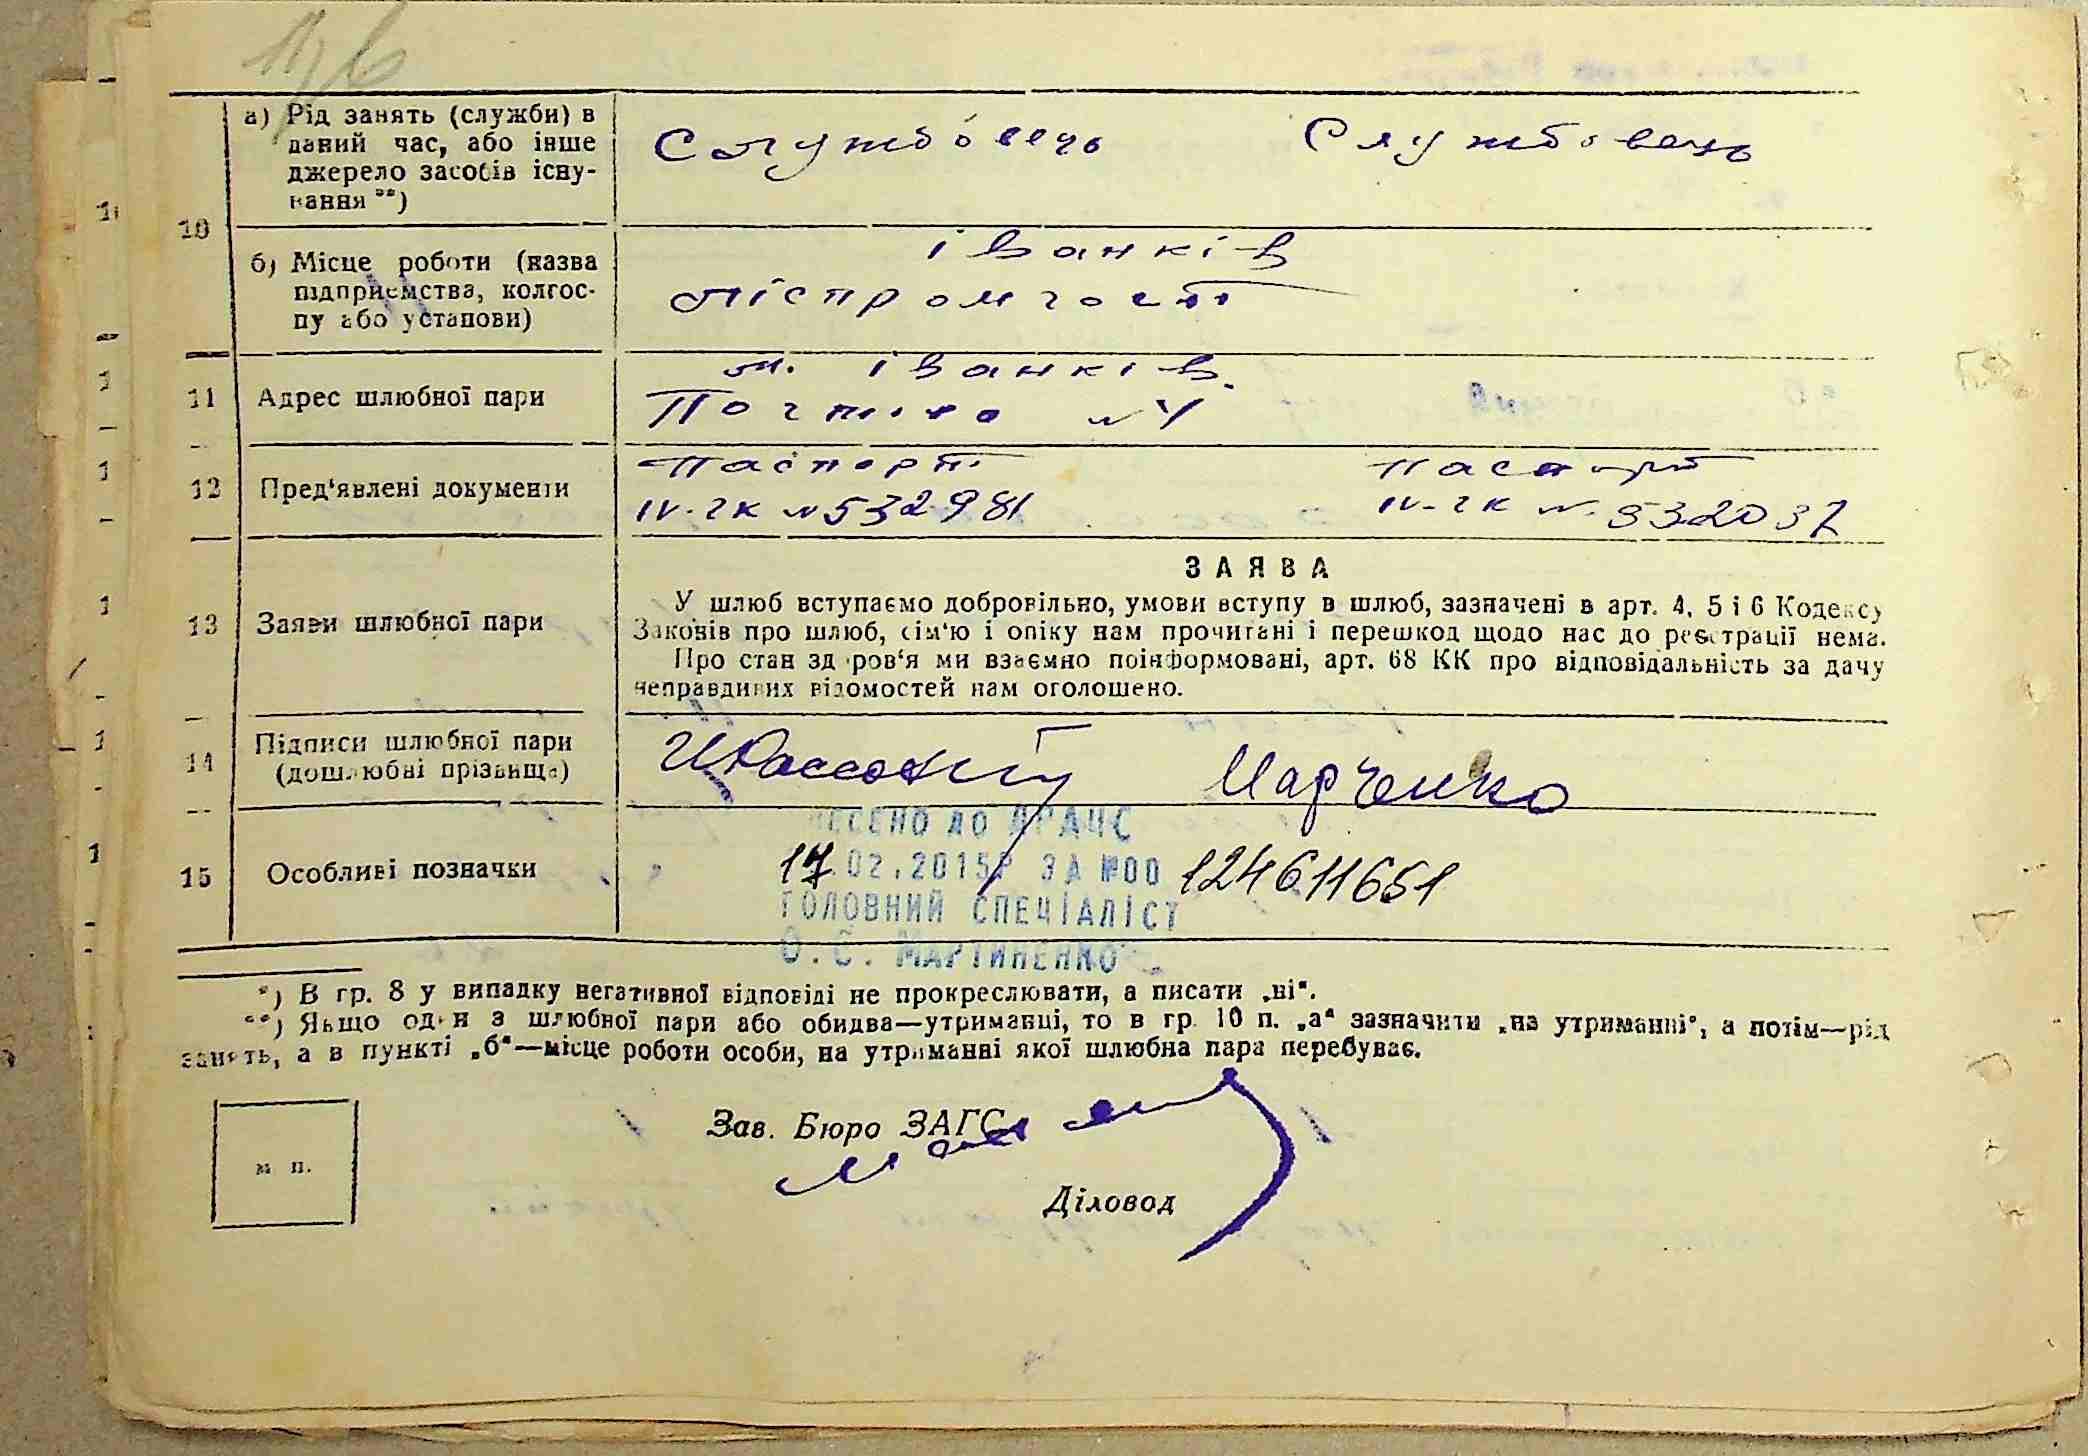 а) Рід занять (служби) в
даний час, або інше
джерело засобів існу-
вання **)
Службовець Службовець
10
б) Місце роботи (назва
підприємства, колгос-
пу або установи)
Іванків
Ліспромгосп
11 Адрес шлюбної пари
м. Іванків.
12 Пред'явлені документи
Паспорт Паспорт
IV-ГК № 532981 IV-ГК № 532037
ЗАЯВА
13 Заяви шлюбної пари
У шлюб вступаємо добровільно, умови вступу в шлюб, зазначені в арт. 4, 5 і 6 Кодексу
Законів про шлюб, сім'ю і опіку нам прочитані і перешкод щодо нас до реєстрації нема.
Про стан здоров'я ми взаємно поінформовані, арт. 68 КК про відповідальність за дачу
неправдивих відомостей нам оголошено.
14 Підписи шлюбної пари
(дошлюбні прізвища)
Марченко
15 Особливі позначки
ВНЕСЕНО ДО ДРАЦС
17.02.2015Р ЗА №00124611651
ГОЛОВНИЙ СПЕЦІАЛІСТ
О.С. МАРТИНЕНКО
*) В гр. 8 у випадку негативної відповіді не прокреслювати, а писати „ні“.
**) Якщо один з шлюбної пари або обидва—утриманці, то в гр. 10 п. „а“ зазначити „на утриманні“, а потім—рід
занять, а в пункті „б“—місце роботи особи, на утриманні якої шлюбна пара перебуває.
Зав. Бюро ЗАГС
м. п.
Діловод